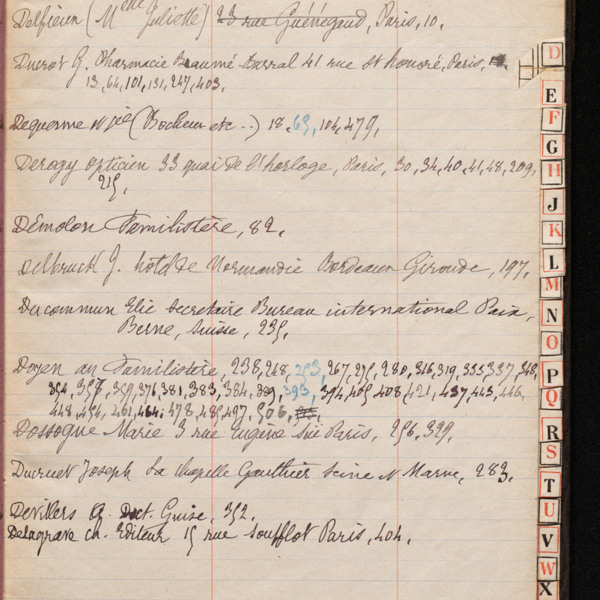 Delfieu (Melle Juliette) 23 rue Guénégaud, Paris, 10.
Ducrot G. Pharmacie Beaumé Barral 41 rue St honoré, Paris,
13, 64, 101, 131, 247, 403.
Dequenne N (Bocheux etc..) 18, 63, 104, 479,
Derogy opticien 33 quai de l'horloge, Paris, 30, 34, 40, 41, 48, 209,
215.
DEmolon Familistère, 82.
Delbruck J. hôtel de Normandie Bordeaux Gironde, 197.
Ducommun Elie Secretaire Bureau international Paix,
Berne, Suisse, 235.
Doyen au Familistère, 238, 248, 253, 267, 275, 280, 316, 319, 333, 337, 348,
354, 357, 359, 376, 381, 383, 384, 389, 393, 394, 405, 408, 421, 437, 445, 446,
448, 454, 461, 464, 478, 485, 497, 506,
Dossogne Marie 3 rue Eugène Sue Paris, 256, 329.
Ducruet Joseph La Chapelle Gauthier Seine et Marne, 283.
Devillers Guise, 352.
Delagrave ch. Editeur 15 rue Soufflot Paris, 404.
D
E
F
G
H
J
K
L
M
N
O
P
Q
R
S
T
U
V
W
X